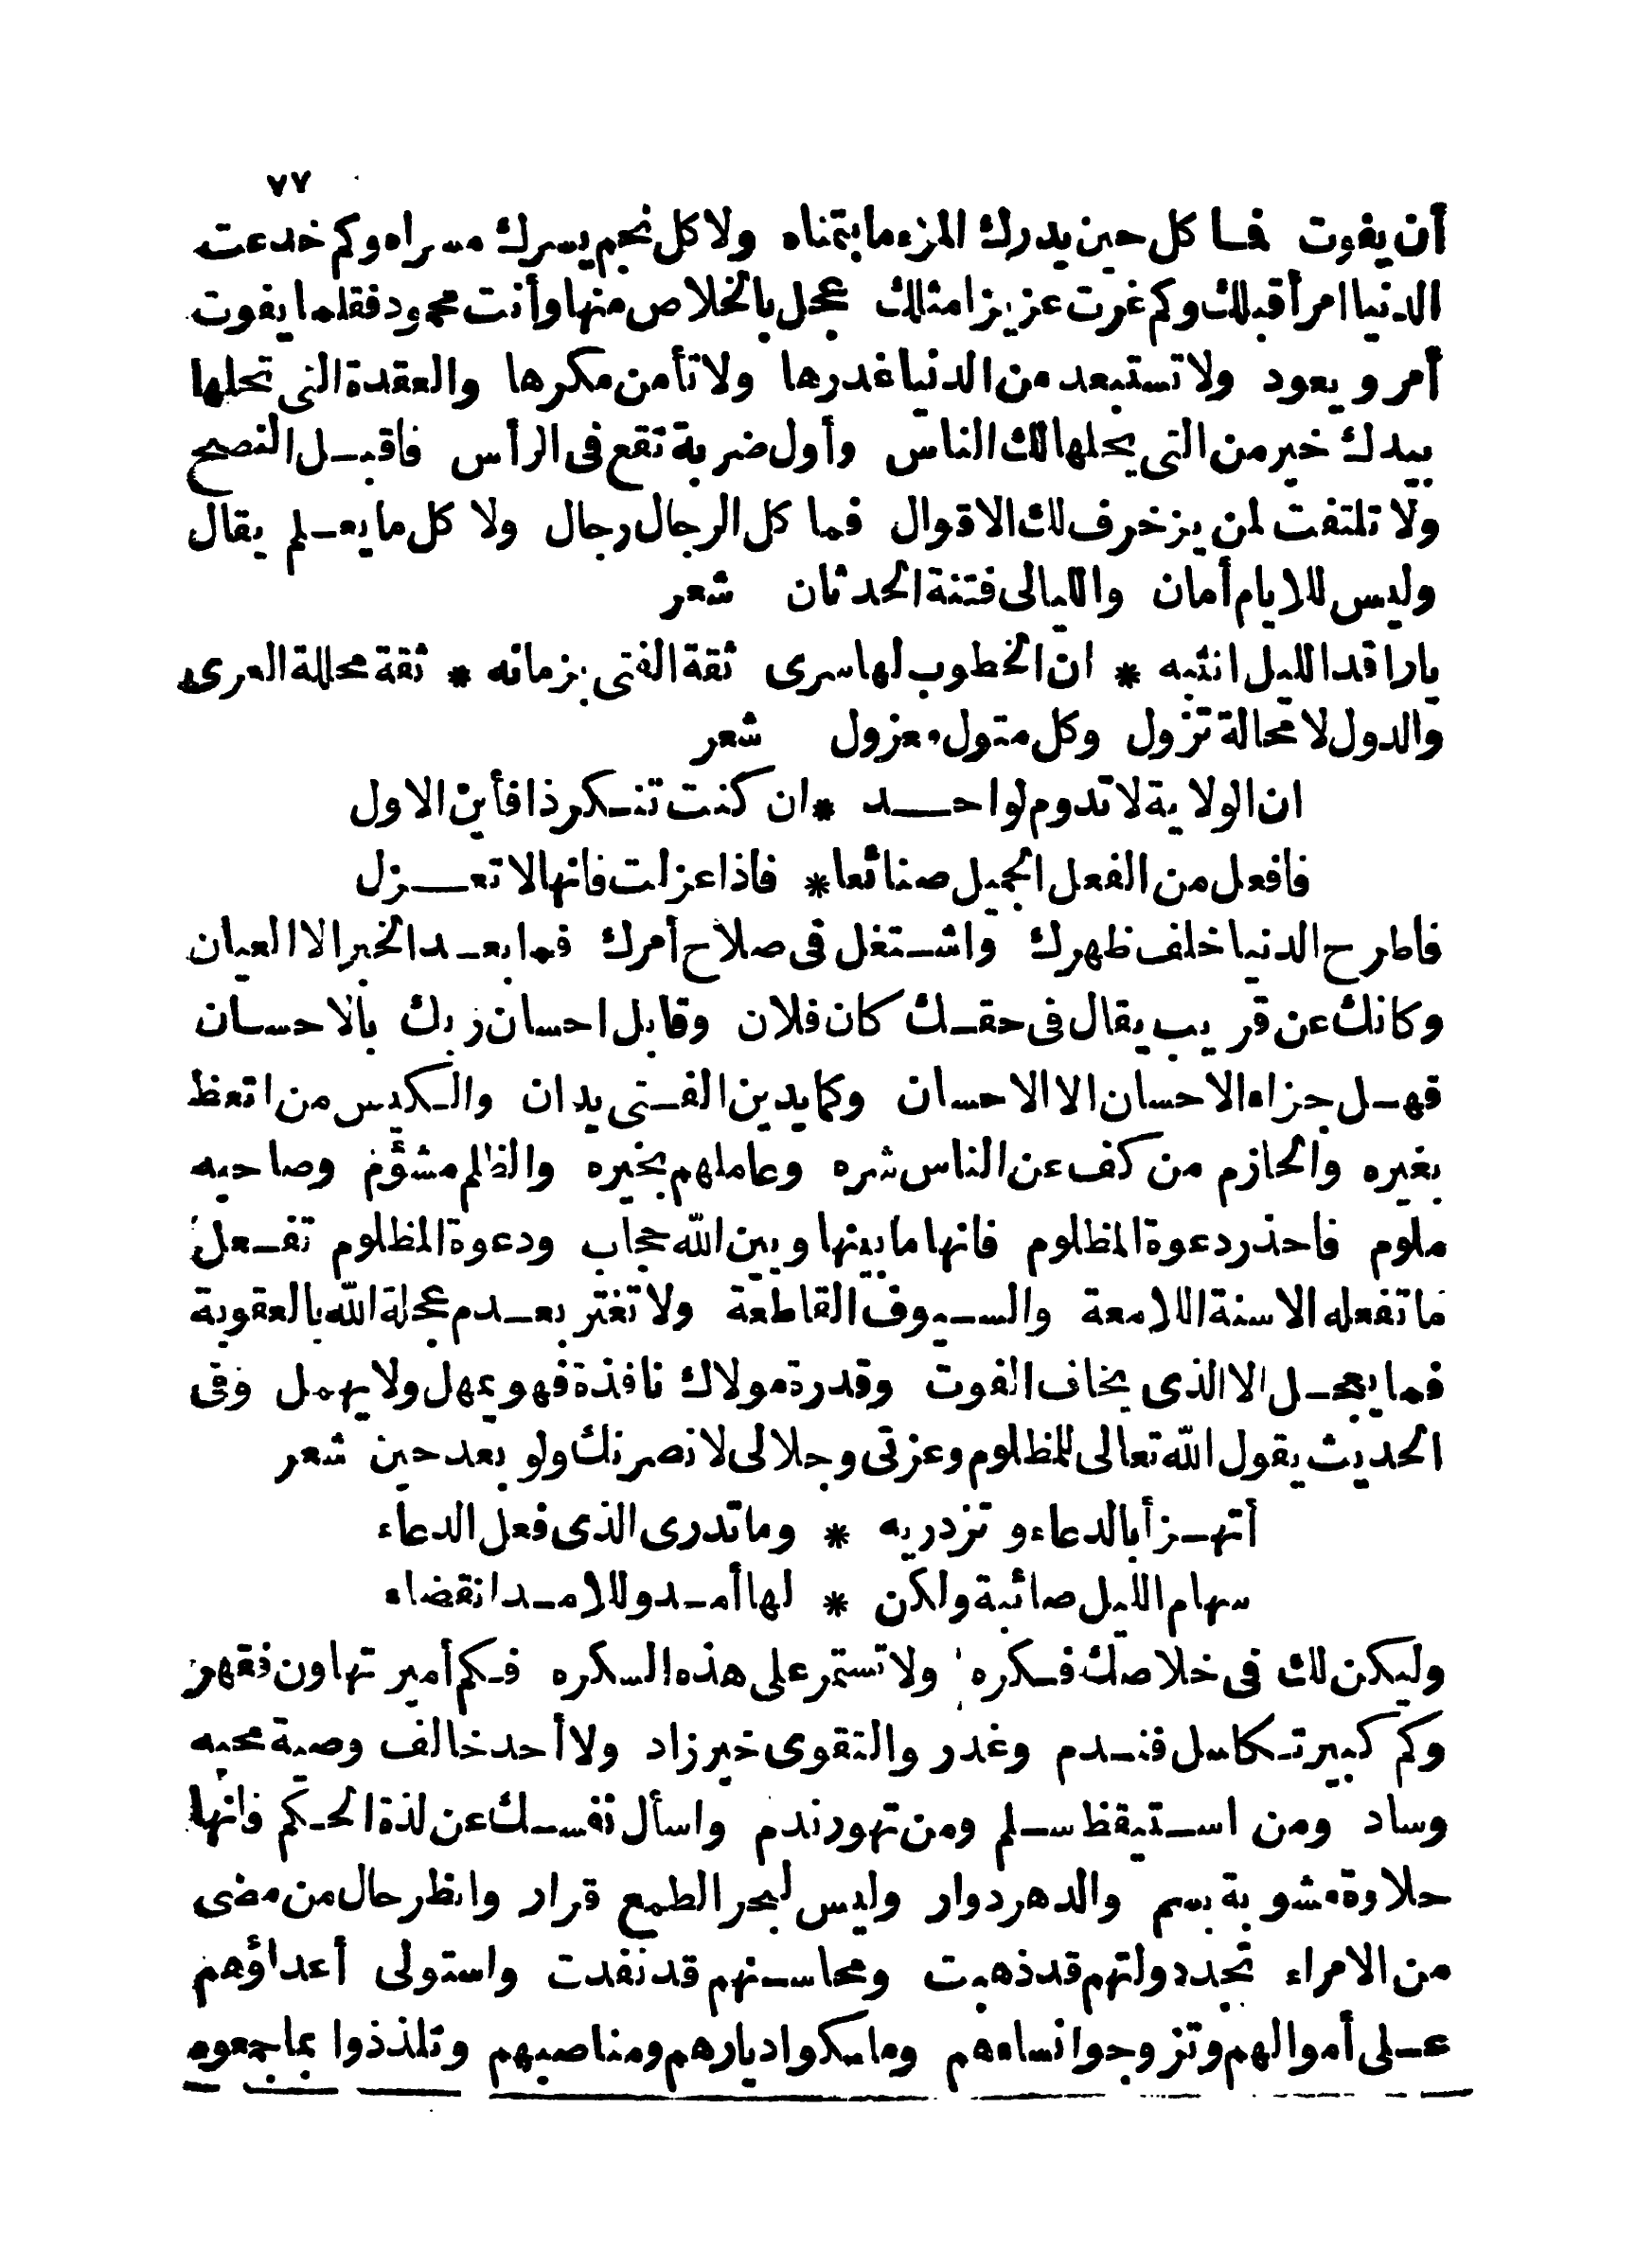 ٧٧
أن يفوت فما كل حين يدرك المرء ما يتمناه ولا كل نجم يسرك مسراه وكم خدعت
الدنيا امرأ قبلك وكم غرت عزيزا مثلك عجل بالخلاص منها وأنت محمود فقلما يفوت
أمر ويعود ولا تستبعد من الدنيا غدرها ولا تأمن مكرها والعقدة التى تحلها
بيدك خير من التى يحلها لك الناس وأول ضربة تقع فى الرأس فاقبل النصح
ولا تلتفت لمن يزخرف لك الاقوال فما كل الرجال رجال ولا كل ما يعلم يقال
وليس للايام أمان والليالى فتنة الحدثان شعر
يا راقد الليل انتبه * ان الخطوب لها سرى ثقة الفتى بزمانه * ثقة محللة العرى
والدول لا محالة تزول وكل متول معزول شعر
ان الولاية لا تدوم لواحد * ان كنت تنكر ذا فأين الاول
فافعل من الفعل الجميل صنائعا * فاذا عزلت فانها لا تعزل
فاطرح الدنيا خلف ظهرك واشتغل فى صلاح أمرك فما بعد الخبر الا العيان
وكانك عن قريب يقال فى حقك كان فلان وقابل احسان ربك بالاحسان
فهل جزاء الاحسان الا الاحسان وكما يدين الفتى يدان والكيس من اتعظ
بغيره والحازم من كف عن الناس شره وعاملهم بخيره والظالم مشؤم وصاحبه
ملوم فاحذر دعوة المظلوم فانها ما بينها وبين الله حجاب ودعوة المظلوم تفعل
ما تفعله الاسنة اللامعة والسيوف القاطعة ولا تغتر بعدم عجلة الله بالعقوبة
فما يعجل الا الذى يخاف الفوت وقدرة مولاك نافذة فهو يمهل ولا يهمل وفى
الحديث يقول الله تعالى للمظلوم وعزتى وجلالى لانصرنك ولو بعد حين شعر
أتهزأ بالدعاء وتزدريه * وما تدرى الذى فعل الدعاء
سهام الليل صائبة ولكن * لها أمد وللامد انقضاء
وليكن لك فى خلاصك فكره ولا تستمر على هذه السكره فكم أمير تهاون فقهر
وكم كبير تكاسل فندم وغدر والتقوى خير زاد ولا أحد خالف وصية محبه
وساد ومن استيقظ سلم ومن تهور ندم واسأل نفسك عن لذة الحكم فانها
حلاوة مشوبة بسم والدهر دوار وليس لبحر الطمع قرار وانظر حال من مضى
من الامراء تجد دولتهم قد ذهبت ومحاسنهم قد نفدت واستولى أعداؤهم
على أموالهم وتزوجوا نساءهم وملكوا ديارهم ومناصبهم وتلذذوا بما جمعوه